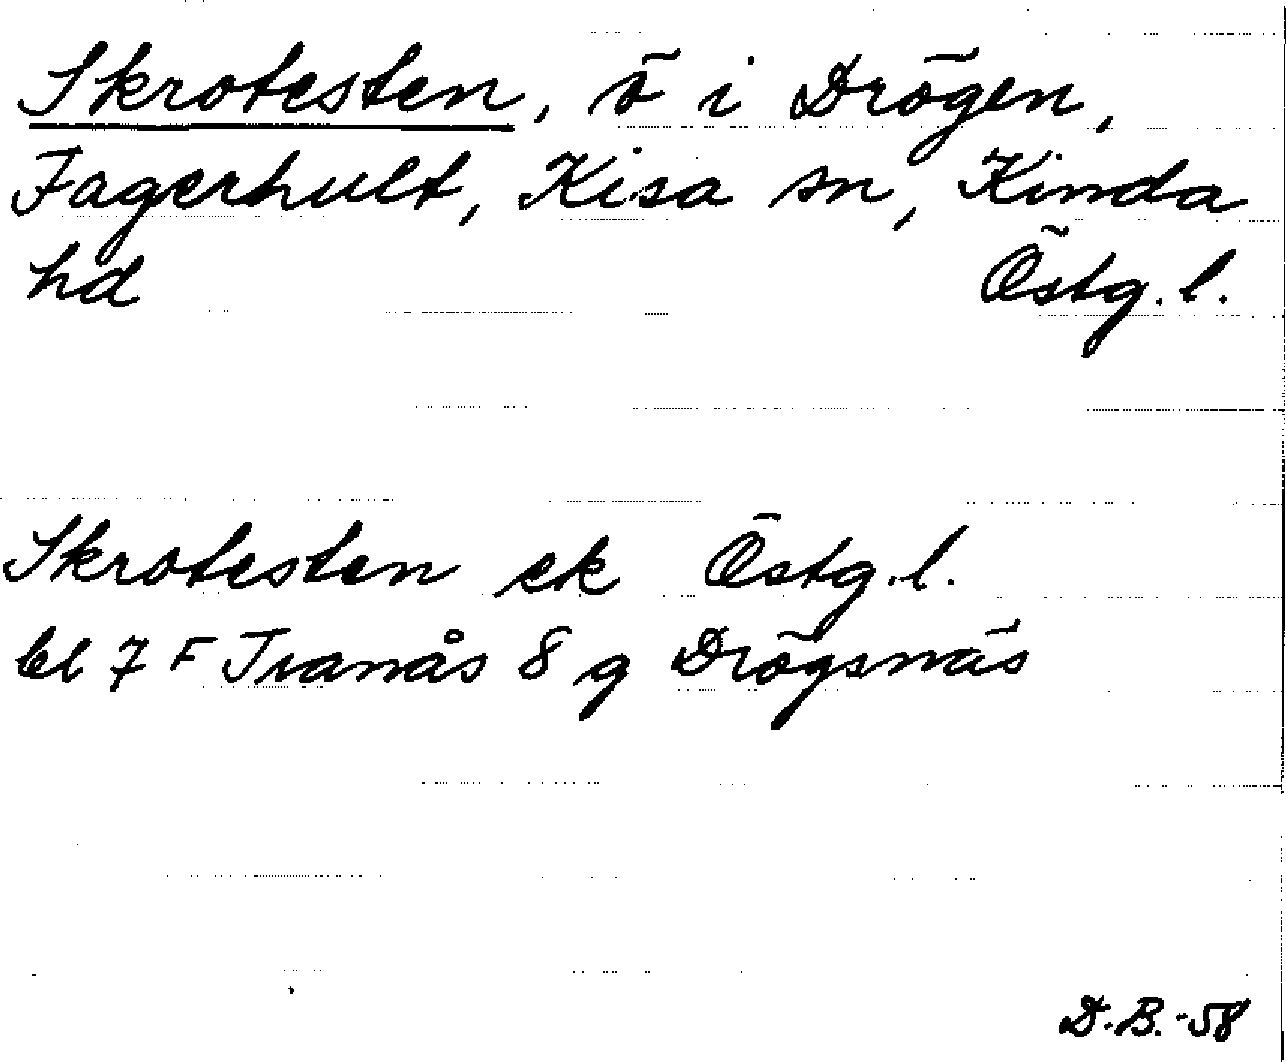 Skrotesten, ö i Drögen,
Fagerhult, Kisa sn, Kinda
hd Östg. l.
Skrotesten ek Östg. l.
bl 7 F Tranås 8 g Drögsnäs
D.B.-58